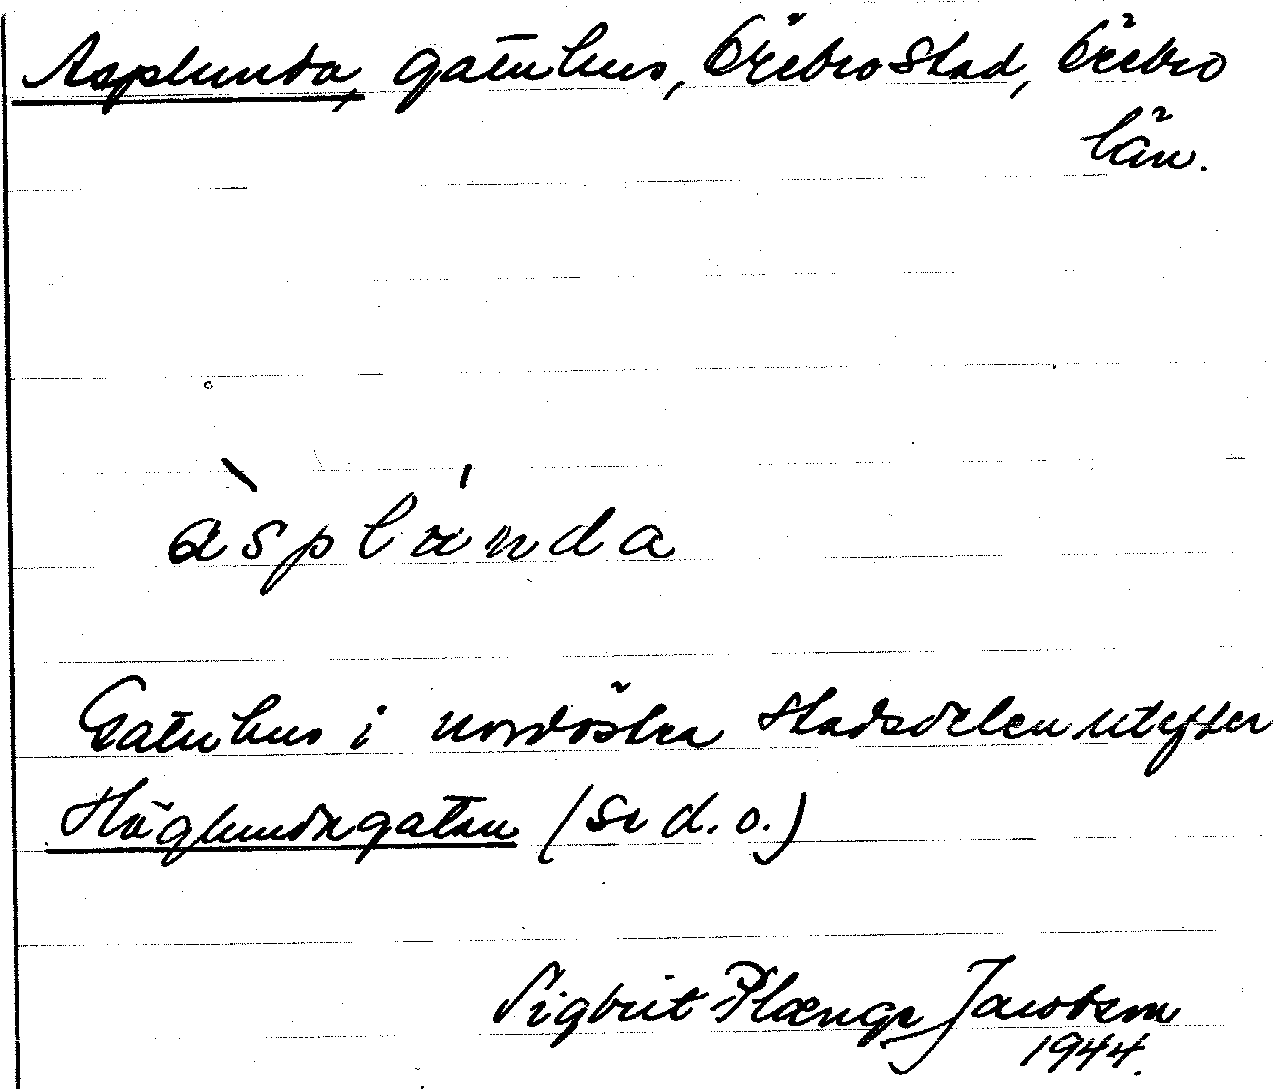 Asplunda, gatuhus, Örebro stad, Örebro
län.
àsplúnda
Gatuhus i nordöstra stadsdelen utefter
Höglundagatan (se d. o.)
Sigbrit Plænge Jacobson
1944.